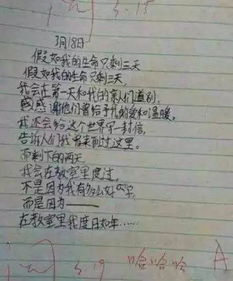 3.15
3月18日
假如我的生命只剩三天
假如我的生命只剩三天
我会在第一天和我的亲人们道别,
感谢他们曾给予我的爱和温暖,
我还会给这个世界写一封信,
告诉人们我曾来到过这里。
而剩下的两天,
我会在教室里度过,
不是因为我有多么好学,
而是因为——
在教室里我度日如年……
3.19
哈哈哈
A